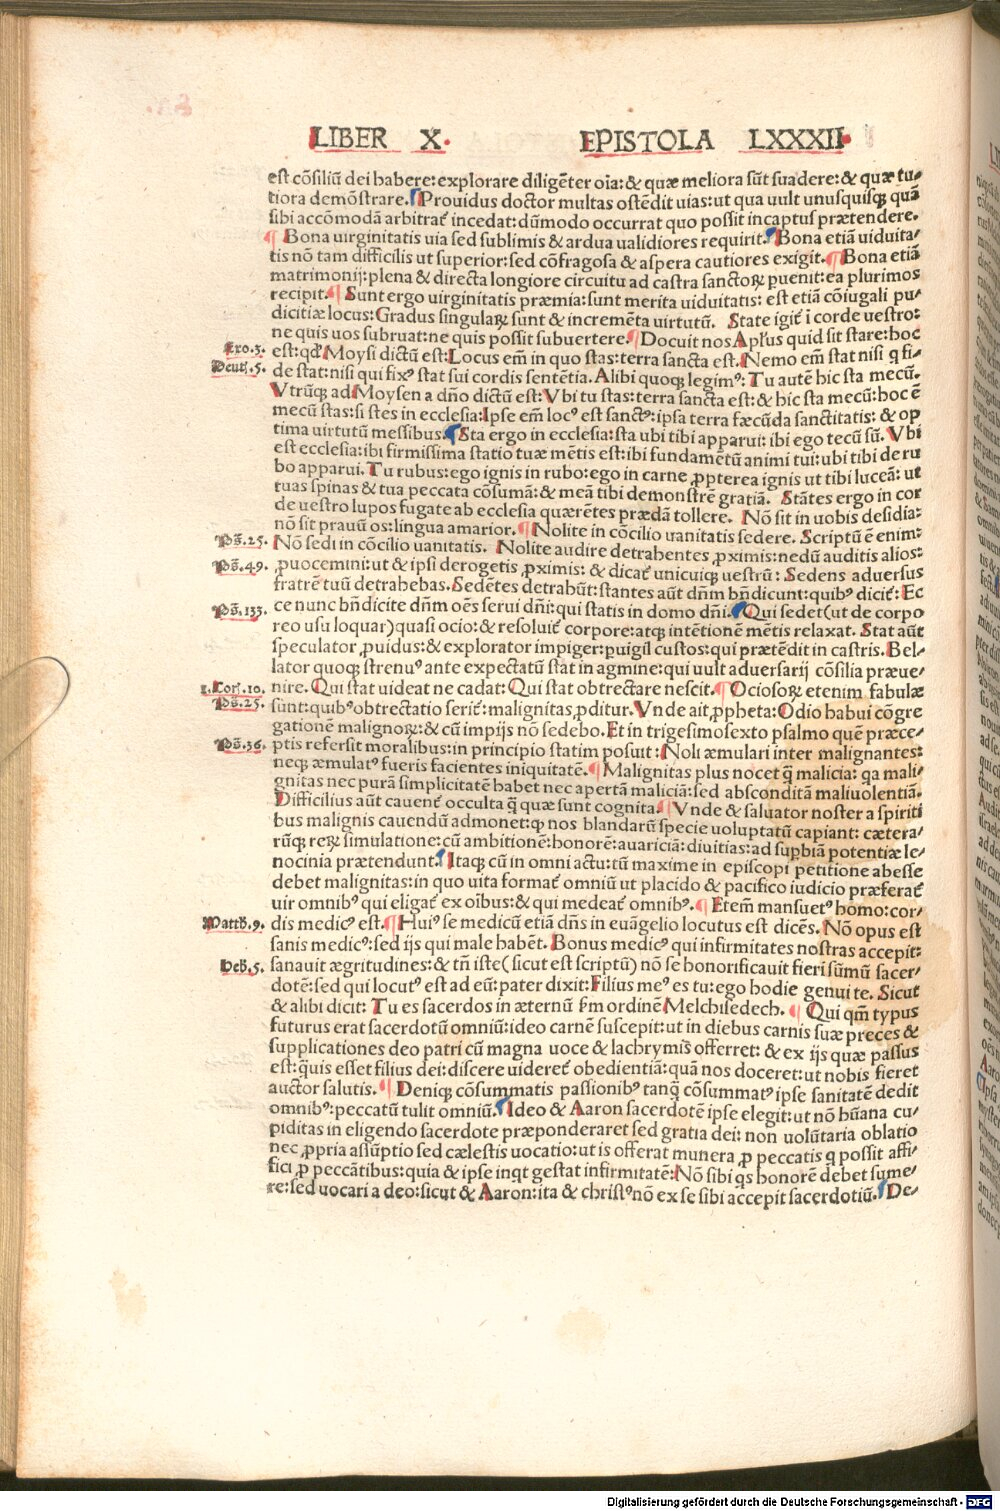 LIBER X. EPISTOLA LXXXII
est cōsiliū dei habere: explorare diligēter oīa: & quæ meliora sūt suadere: & quæ tu/
tiora demōstrare. Prouidus doctor multas ostēdit uias: ut qua uult unusquisqꝫ quā
sibi accōmodā arbitrat᷑ incedat: dūmodo occurrat quo possit incaptus prætendere.
¶ Bona uirginitatis uia sed sublimis & ardua ualidiores requirit. Bona etiā uiduita/
tis nō tam difficilis ut superior: sed cōfragosa & aspera cautiores exigit. ¶ Bona etiā
matrimonij: plena & directa longiore circuitu ad castra sanctoꝝ puenit: ea plurimos
recipit. ¶ Sunt ergo uirginitatis præmia: sunt merita uiduitatis: est etiā cōiugali pu/
dicitiæ locus: Gradus singulaꝝ sunt & incremēta uirtutū. State igit᷑ ī corde uestro:
ne quis uos subruat: ne quis possit subuertere. ¶ Docuit nos Apl̄us quid sit stare: hoc
Exo.3. est: qd̓ Moysi dictū est: Locus em̄ in quo stas: terra sancta est. Nemo em̄ stat nisi q fi/
Deut᷑.5. de stat: nisi qui fixꝰ stat sui cordis sentētia. Alibi quoqꝫ legimꝰ: Tu autē hic sta mecū.
Vtrūqꝫ ad Moysen a dn̄o dictū est: Vbi tu stas: terra sancta est: & hic sta mecū: hoc ē
mecū stas: si stes in ecclesia: Ipse em̄ locꝰ est sanctꝰ: ipsa terra fæcūda sanctitatis: & op
tima uirtutū messibus. Sta ergo in ecclesia: sta ubi tibi apparui: ibi ego tecū sū. Vbi
est ecclesia: ibi firmissima statio tuæ mētis est: ibi fundamētū animi tui: ubi tibi de ru
bo apparui. Tu rubus: ego ignis in rubo: ego in carne ꝓpterea ignis ut tibi luceā: ut
tuas spinas & tua peccata cōsumā: & meā tibi demonstrē gratiā. Stātes ergo in cor
de uestro lupos fugate ab ecclesia quærētes prædā tollere. Nō sit in uobis desidia:
nō sit prauū os: lingua amarior. ¶ Nolite in cōcilio uanitatis sedere. Scriptū ē enim:
Ps̄.25. Nō sedi in cōcilio uanitatis. Nolite audire detrahentes ꝓximis: nedū auditis alios:
Ps̄.49. ꝓuocemini: ut & ipsi derogetis ꝓximis: & dicat᷑ unicuiqꝫ uestrū: Sedens aduersus
fratrē tuū detrahebas. Sedētes detrahūt: stantes aūt dn̄m bn̄dicunt: quibꝰ dicit᷑: Ec
Ps̄.133. ce nunc bn̄dicite dn̄m oēs serui dn̄i: qui statis in domo dn̄i. Qui sedet (ut de corpo
reo usu loquar) quasi ocio: & resoluit᷑ corpore: atqꝫ intētionē mētis relaxat. Stat aūt
speculator ꝓuidus: & explorator impiger: puigil custos: qui prætēdit in castris. Bel/
lator quoqꝫ strenuꝰ ante expectatū stat in agmine: qui uult aduersarij cōsilia præue/
1.Cor᷑.10. nire. Qui stat uideat ne cadat: Qui stat obtrectare nescit. ¶ Ociosoꝝ etenim fabulæ
Ps̄.25. sunt: quibꝰ obtrectatio serit᷑: malignitas ꝓditur. Vnde ait ꝓpheta: Odio habui cōgre
gationē malignoꝝ: & cū impijs nō sedebo. Et in trigesimosexto psalmo quē præce/
Ps̄.36. ptis refersit moralibus: in principio statim posuit: Noli æmulari inter malignantes:
neqꝫ æmulatꝰ fueris facientes iniquitatē. ¶ Malignitas plus nocet q̄ malicia: qa mali/
gnitas nec purā simplicitatē habet nec apertā maliciā: sed absconditā maliuolentiā.
Difficilius aūt cauent᷑ occulta q̄ quæ sunt cognita. ¶ Vnde & saluator noster a spiriti
bus malignis cauendū admonet: ꝙ nos blandarū specie uoluptatū capiant: cætera/
rūqꝫ reꝝ simulatione: cū ambitionē: honorē: auariciā: diuitias: ad supbiā potentiæ le/
nocinia prætendunt. Itaqꝫ cū in omni actu: tū maxime in episcopi petitione abesse
debet malignitas: in quo uita format᷑ omniū ut placido & pacifico iudicio præferat᷑
uir omnibꝰ qui eligat᷑ ex oībus: & qui medeat᷑ omnibꝰ. ¶ Etem̄ mansuetꝰ homo: cor/
Matth.9. dis medicꝰ est. ¶ Huiꝰ se medicū etiā dn̄s in euāgelio locutus est dicēs. Nō opus est
sanis medicꝰ: sed ijs qui male habēt. Bonus medicꝰ qui infirmitates nostras accepit:
Heb.5. sanauit ægritudines: & tn̄ iste (sicut est scriptū) nō se honorificauit fieri sūmū sacer/
dotē: sed qui locutꝰ est ad eū: pater dixit: Filius meꝰ es tu: ego hodie genui te. Sicut
& alibi dicit: Tu es sacerdos in æternū ẜm ordinē Melchisedech. ¶ Qui qm̄ typus
futurus erat sacerdotū omniū: ideo carnē suscepit: ut in diebus carnis suæ preces &
supplicationes deo patri cū magna uoce & lachrymis offerret: & ex ijs quæ passus
est: q̄uis esset filius dei: discere uideret᷑ obedientiā: quā nos doceret: ut nobis fieret
auctor salutis. ¶ Deniqꝫ cōsummatis passionibꝰ tanq̄ cōsummatꝰ ipse sanitatē dedit
omnibꝰ: peccatū tulit omniū. Ideo & Aaron sacerdotē ipse elegit: ut nō hūana cu/
piditas in eligendo sacerdote præponderaret sed gratia dei: non uolūtaria oblatio
nec ꝓpria assūptio sed cælestis uocatio: ut is offerat munera ꝓ peccatis q possit affi/
fici ꝓ peccātibus: quia & ipse inqt gestat infirmitatē: Nō sibi qs honorē debet sume/
re: sed uocari a deo: sicut & Aaron: ita & christꝰ nō ex se sibi accepit sacerdotiū. De/
Digitalisierung gefördert durch die Deutsche Forschungsgemeinschaft - DFG